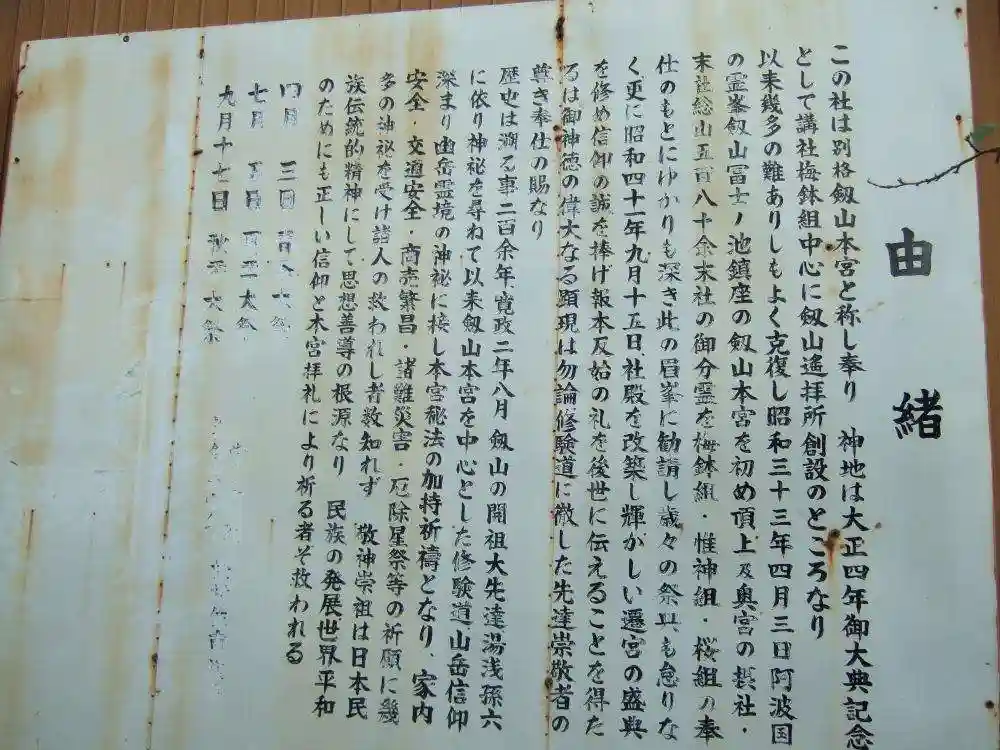 由緒
この社は別格劔山本宮と称し奉り　神地は大正四年御大典記念
として講社梅鉢組中心に劔山遙拝所創設のところなり
以来幾多の難ありしもよく克復し昭和三十三年四月三日阿波国
の霊峯劔山冨士ノ池鎮座の劔山本宮を初め頂上及奥宮の摂社・
末社総山五百八十余末社の御分霊を梅鉢組・惟神組・桜組の奉
仕のもとにゆかりも深き此の眉峯に勧請し歳々の祭典も怠りな
く更に昭和四十一年九月十五日社殿を改築し輝かしい遷宮の盛典
を修め信仰の誠を捧げ報本反始の礼を後世に伝えることを得た
るは御神徳の偉大なる顕現は勿論修験道に徹した先達崇敬者の
尊き奉仕の賜なり
歴史は溯る事二百余年寛政二年八月劔山の開祖大先達湯浅孫六
に依り神秘を尋ねて以来劔山本宮を中心とした修験道山岳信仰
深まり幽岳霊境の神秘に接し本宮秘法の加持祈禱となり、家内
安全・交通安全・商売繁昌・諸難災害・厄除星祭等の祈願に幾
多の神秘を受け諸人の救われし者数知れず　敬神崇祖は日本民
族伝統的精神にして思想善導の根源なり　民族の発展世界平和
のためにも正しい信仰と本宮拝礼により祈る者ぞ救われる
四月　三日　大祭
七月　大祭
九月十七日　秋　大祭